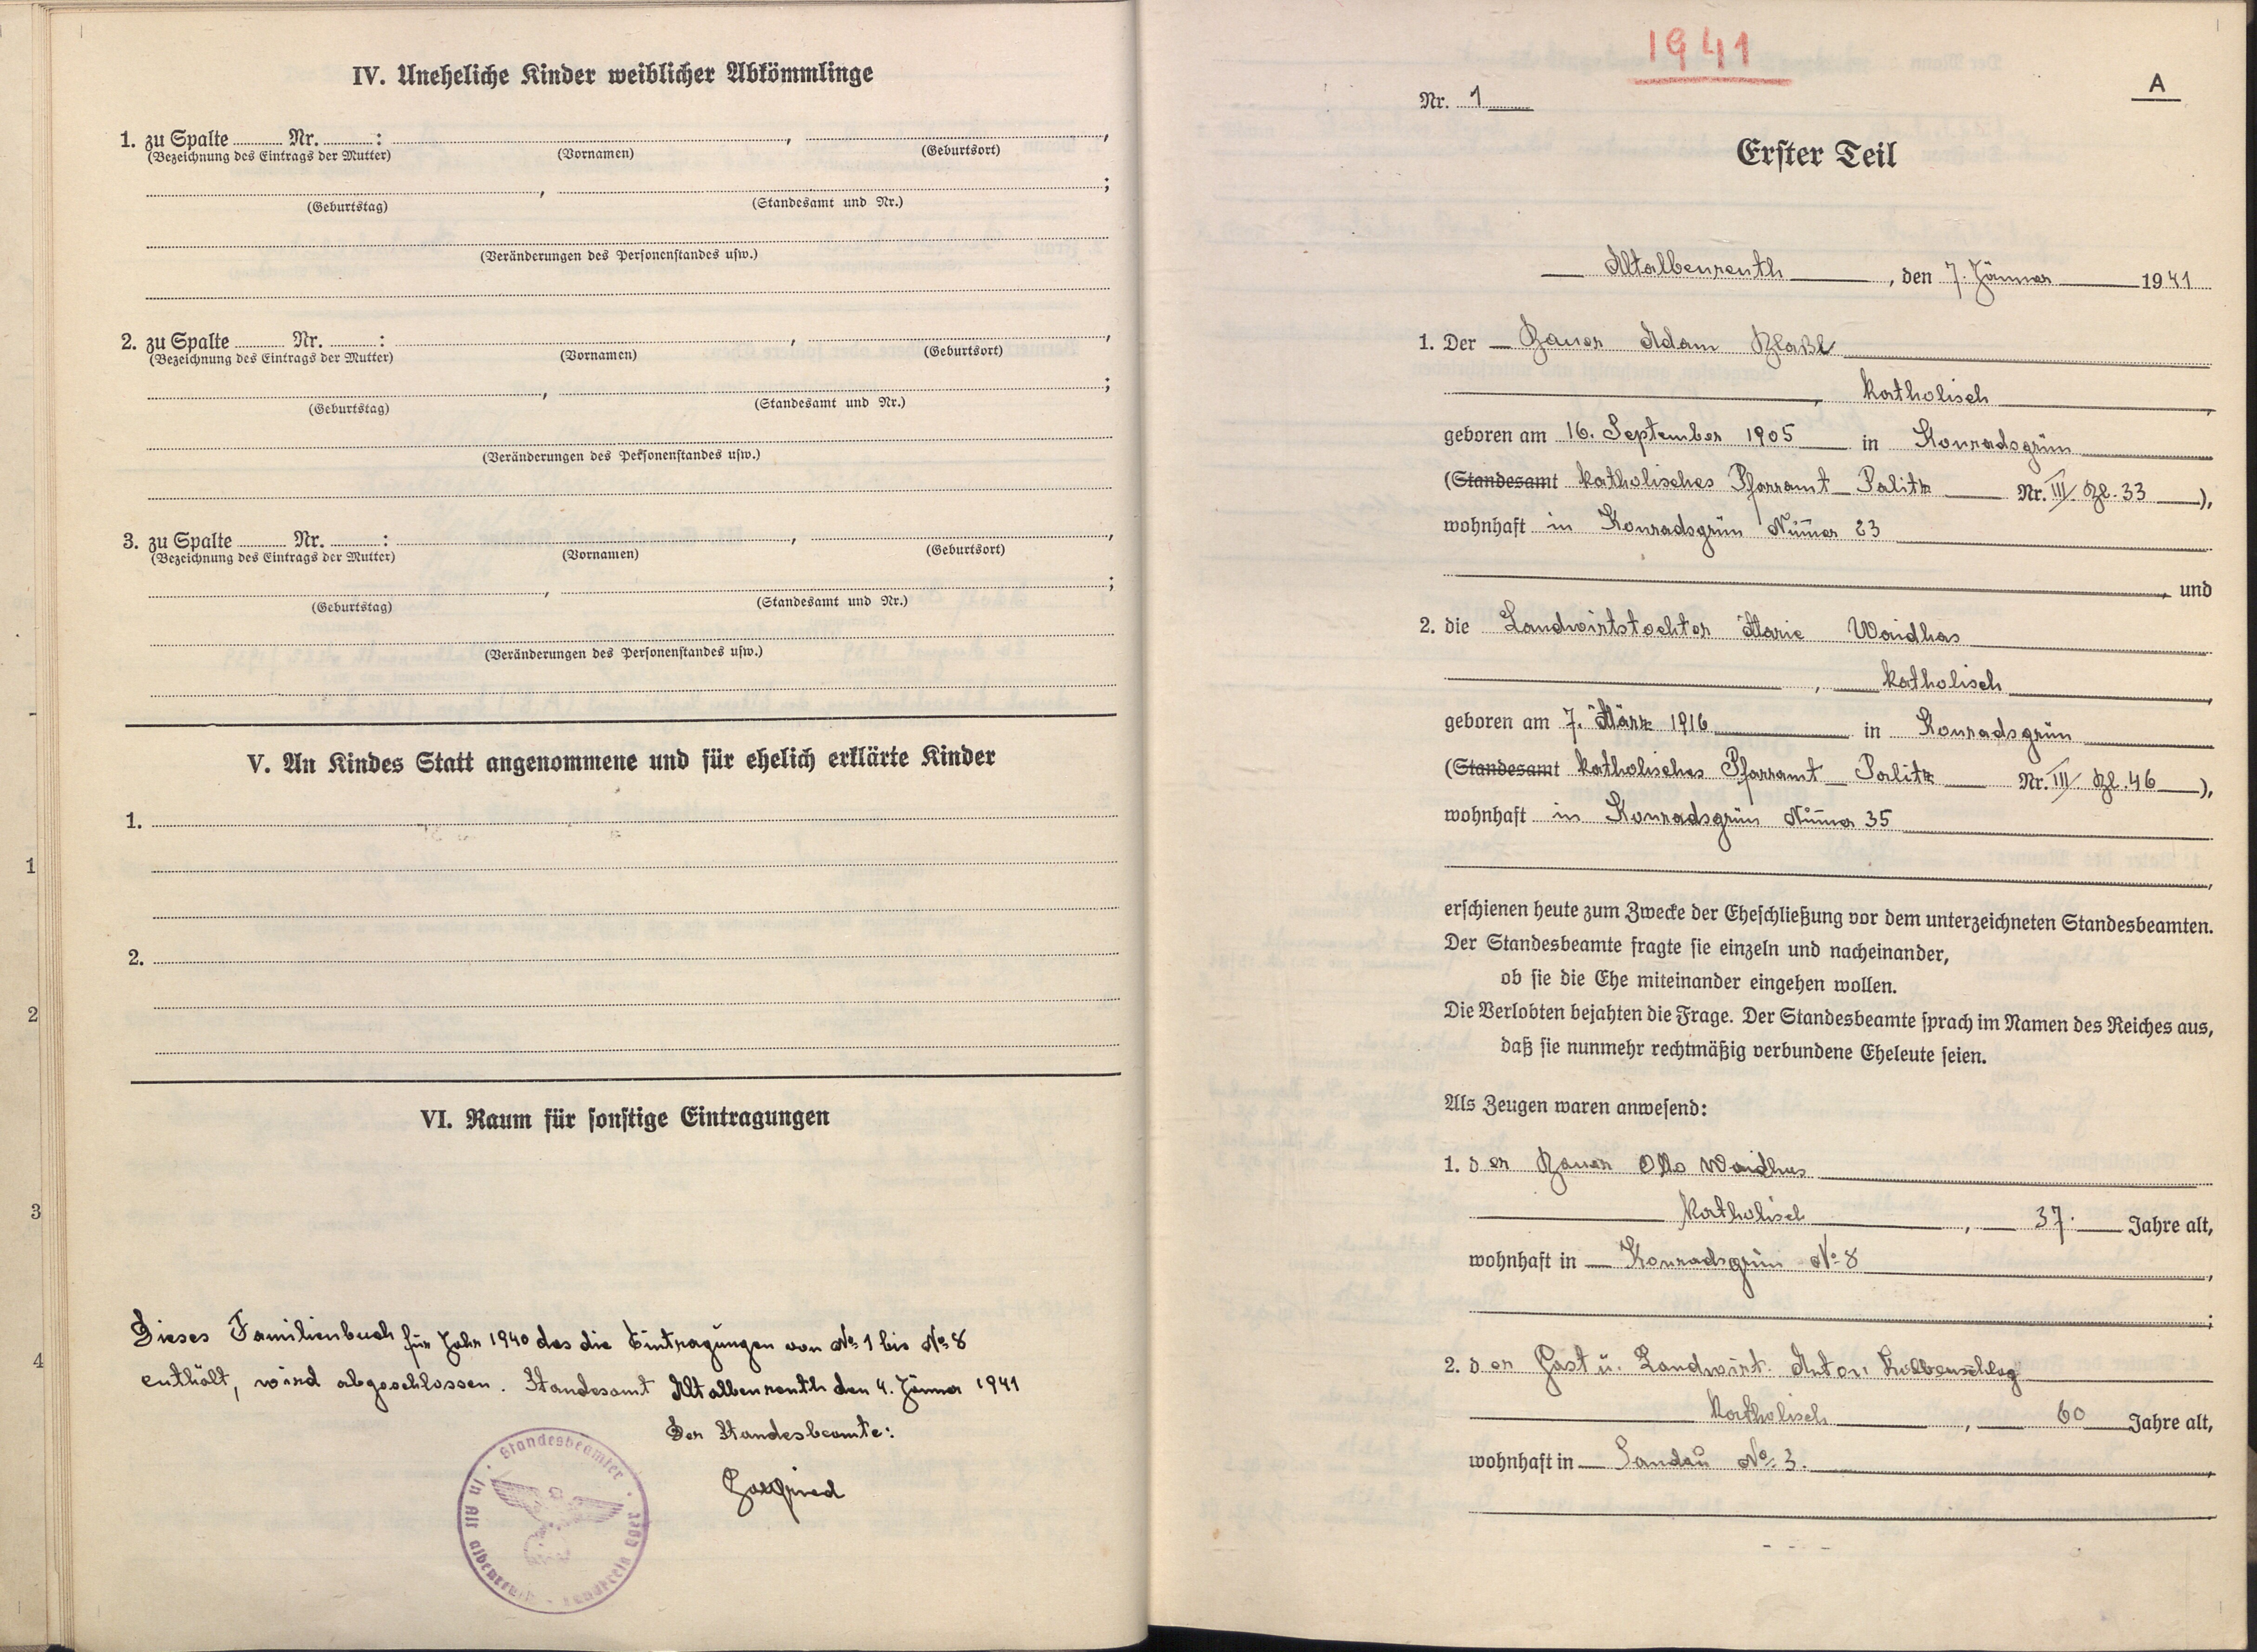 IV. Uneheliche Kinder weiblicher Abkömmlinge
1. zu Spalte Nr. : , ,
(Bezeichnung des Eintrags der Mutter) (Vornamen) (Geburtsort)
, ;
(Geburtstag) (Standesamt und Nr.)
(Veränderungen des Personenstandes usw.)
2. zu Spalte Nr. : , ,
(Bezeichnung des Eintrags der Mutter) (Vornamen) (Geburtsort)
, ;
(Geburtstag) (Standesamt und Nr.)
(Veränderungen des Personenstandes usw.)
3. zu Spalte Nr. : , ,
(Bezeichnung des Eintrags der Mutter) (Vornamen) (Geburtsort)
, ;
(Geburtstag) (Standesamt und Nr.)
(Veränderungen des Personenstandes usw.)
V. An Kindes Statt angenommene und für ehelich erklärte Kinder
1.
2.
VI. Raum für sonstige Eintragungen
Dieses Familienbuch für Jahr 1940 das die Eintragungen von No 1 bis No 8
enthält, wird abgeschlossen. Standesamt Altalbenreuth den 4. Jänner 1941
Der Standesbeamte:
Standesbeamter
in Alt albenreuth - Landkreis Eger
1
2
3
4
1941
A
Nr. 1
Erster Teil
Altalbenreuth, den 7. Jänner 1941
1. Der Bauer Adam
, katholisch,
geboren am 16. September 1905 in Konradsgrün
(Standesamt katholisches Pfarramt Palitz Nr. III. Bl. 33),
wohnhaft in Konradsgrün Num̄er 23
, und
2. die Landwirtstochter Marie Waidhas
, katholisch,
geboren am 7. März 1916 in Konradsgrün
(Standesamt katholisches Pfarramt Palitz Nr. III. Bl. 46),
wohnhaft in Konradsgrün Num̄er 35
,
erschienen heute zum Zwecke der Eheschließung vor dem unterzeichneten Standesbeamten.
Der Standesbeamte fragte sie einzeln und nacheinander,
ob sie die Ehe miteinander eingehen wollen.
Die Verlobten bejahten die Frage. Der Standesbeamte sprach im Namen des Reiches aus,
daß sie nunmehr rechtmäßig verbundene Eheleute seien.
Als Zeugen waren anwesend:
1. der Bauer Otto Waidhas
katholisch, 37. Jahre alt,
wohnhaft in Konradsgrün No 8,
;
2. der Gast u. Landwirt. Anton Kolbenschlag
katholisch, 60 Jahre alt,
wohnhaft in Sandau No. 3.,